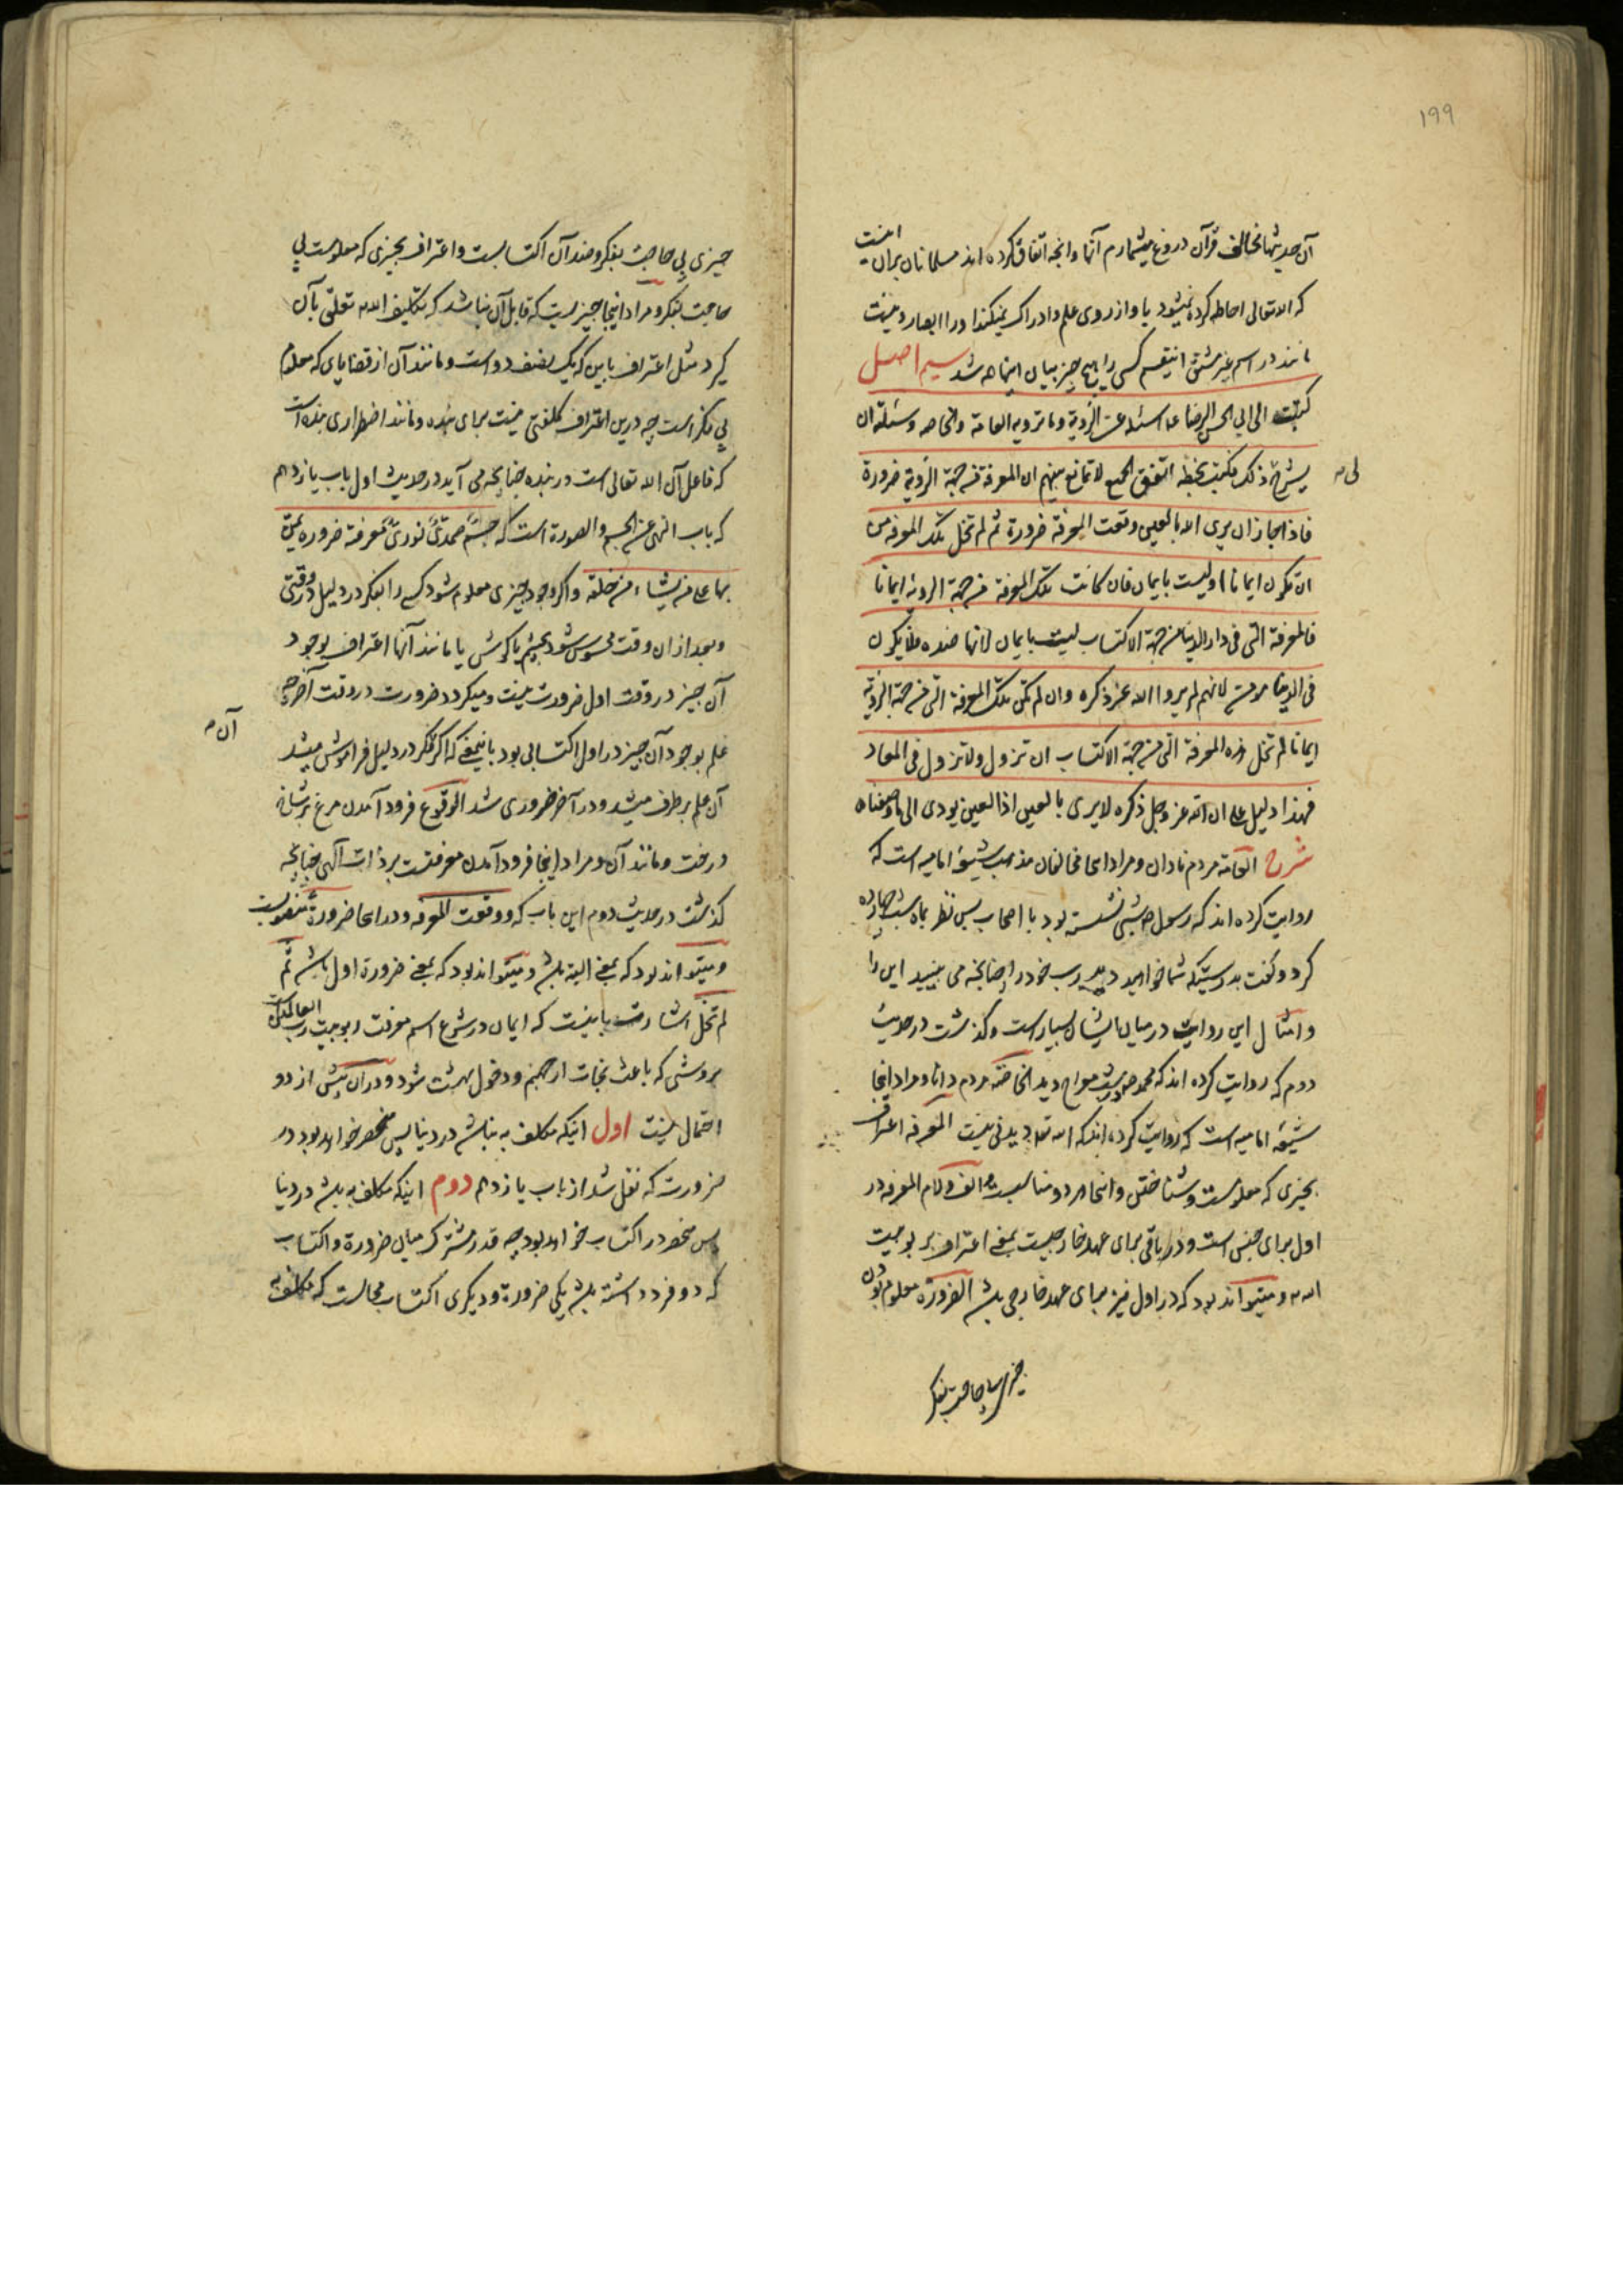 ۱۹۹
آن حدیثها مخالف قرآن دروغ میشمارم آنها و آنچه اتفاق کرده اند مسلمانان بران اینست
که الله تعالی احاطه کرده نمیشود باو از روی علم و ادراک نمیکند او را ابصار و نیست
مانند در اسم غیر مشتق کسی را هیچ چیز بیان اینها شد سیم اصل
کتبت الی ابی الحسن الرضا ع اسئله عن الرؤیة وما ترویه العامة والخاصه وسئلته ان
یشرح ذلک فکتب بخطه اتفق الجمیع لا تمانع بینهم ان المعرفة من جهة الرؤیة ضرورة
لی
فاذا جاز ان یری الله بالعین وقعت المعرفة ضرورة ثم لم تخل تلک المعرفه من
ان تکون ایمانا او لیست بایمان فان کانت تلک المعرفة من جهة الرؤیة ایمانا
فالمعرفة التی فی دار الدنیا من جهة الاکتساب لیست بایمان لانها ضده فلا یکون
فی الدنیا مؤمن لانهم لم یروا الله عز ذکره وان لم تکن تلک المعرفة التی من جهة الرؤیة
ایمانا لم تخل هذه المعرفة التی من جهة الاکتساب ان تزول ولا تزول فی المعاد
فهذا دلیل علی ان الله عز وجل ذکره لا یری بالعین اذ العین یودی الی ما وصفناه
شرح العامة مردم نادان و مراد اینجا مخالفان مذهب شیعۀ امامیه است که
روایت کرده اند که رسول ص شبی نشسته بود با اصحاب پس نظر بماه شب چهارده
کرد و گفت بدرستیکه شما خواهید دید رب خود را چنانچه می بینید این را
و امثال این روایت در میان ایشان بسیارست و گذشت در حدیث
دوم که روایت کرده اند که محمد ص در شب معراج دید الخاصّه مردم دانا و مراد اینجا
شیعۀ امامیه است که روایت کرده اند که الله تعالی دیدنی نیست المعرفه اعتراف
بچیزی که معلومست و شناختن و اینجا هر دو مناسبست و الف و لام المعرفه در
اول برای جنس است و در باقی برای عهد خارجیست بمعنی اعتراف بر بوبیت
الله و میتواند بود که در اول نیز برای عهد خارجی باشد الضرورة معلوم بودن
چیزی بی حاجت بفکر
چیزی بی حاجت بفکر و ضد آن اکتسابست و اعتراف بچیزی که معلومست بی
حاجت بفکر و مراد اینجا چیزیست که قابل آن نباشد که تکلیف الله تعلّق بآن
گیرد مثل اعتراف باین که یک نصف دو است و مانند آن از قضایای که معلوم
بی فکر است چه درین اعتراف کلفتی نیست برای بنده و مانند اضطراری بنده است
که فاعل آن الله تعالی است در بنده چنانچه می آید در حدیث اول باب یازدهم
که باب النهی عن الجسم والصورة است که جسمٌ صمدیٌّ نوریٌّ معرفته ضرورة یمنّ
بها علی من یشاء من خلقه و اگر وجود چیزی معلوم شود کسی را بفکر در دلیل در وقتی
و بعد از ان وقت محسوس شود بچشم یا گوش یا مانند آنها اعتراف بوجود
آن چیز در وقت اول ضرورت نیست و میگردد ضرورت در وقت آخر چه
علم بوجود آن چیز در اول اکتسابی بود باینمعنی که اگر فکر در دلیل فراموش میشد
آن
آن علم برطرف میشد و در آخر ضروری شد الوقوع فرود آمدن مرغ بر شاخ
درخت و مانند آن و مراد اینجا فرود آمدن معرفتست بر ذات الهی چنانچه
گذشت در حدیث دوم این باب که و وقعت المعرفه و در اینجا ضرورة منصوبست
و میتواند بود که بمعنی البته باشد و میتواند بود که بمعنی ضرورة اول باشد ثم
لم تخل اشارت باینست که ایمان در شرع اسم معرفت ربوبیت رب العالمین است
بروشی که باعث نجات از جهنم و دخول بهشت شود و در آن بیش از دو
احتمال نیست اول اینکه مکلف به نباشد در دنیا پس منحصر خواهد بود در
ضرورت که نقل شد از باب یازدهم دوم اینکه مکلف به باشد در دنیا
پس منحصر در اکتساب خواهد بود چه قدر مشترک میان ضرورة و اکتساب
که دو فرد داشته باشد یکی ضرورة و دیگری اکتساب محالست که مکلف به